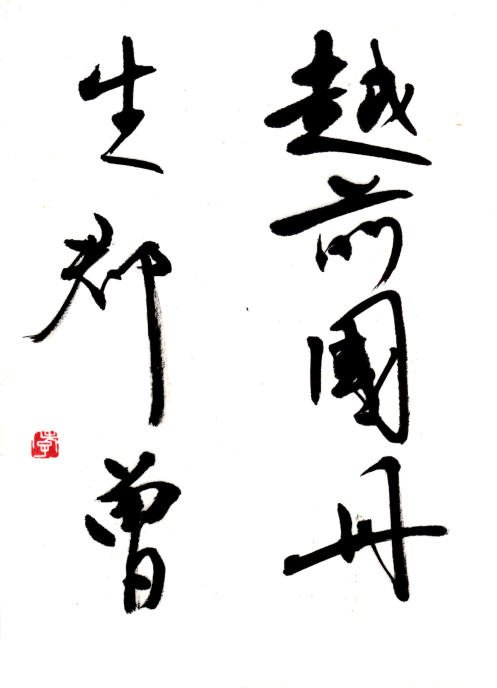 越前國丹
生郡曽